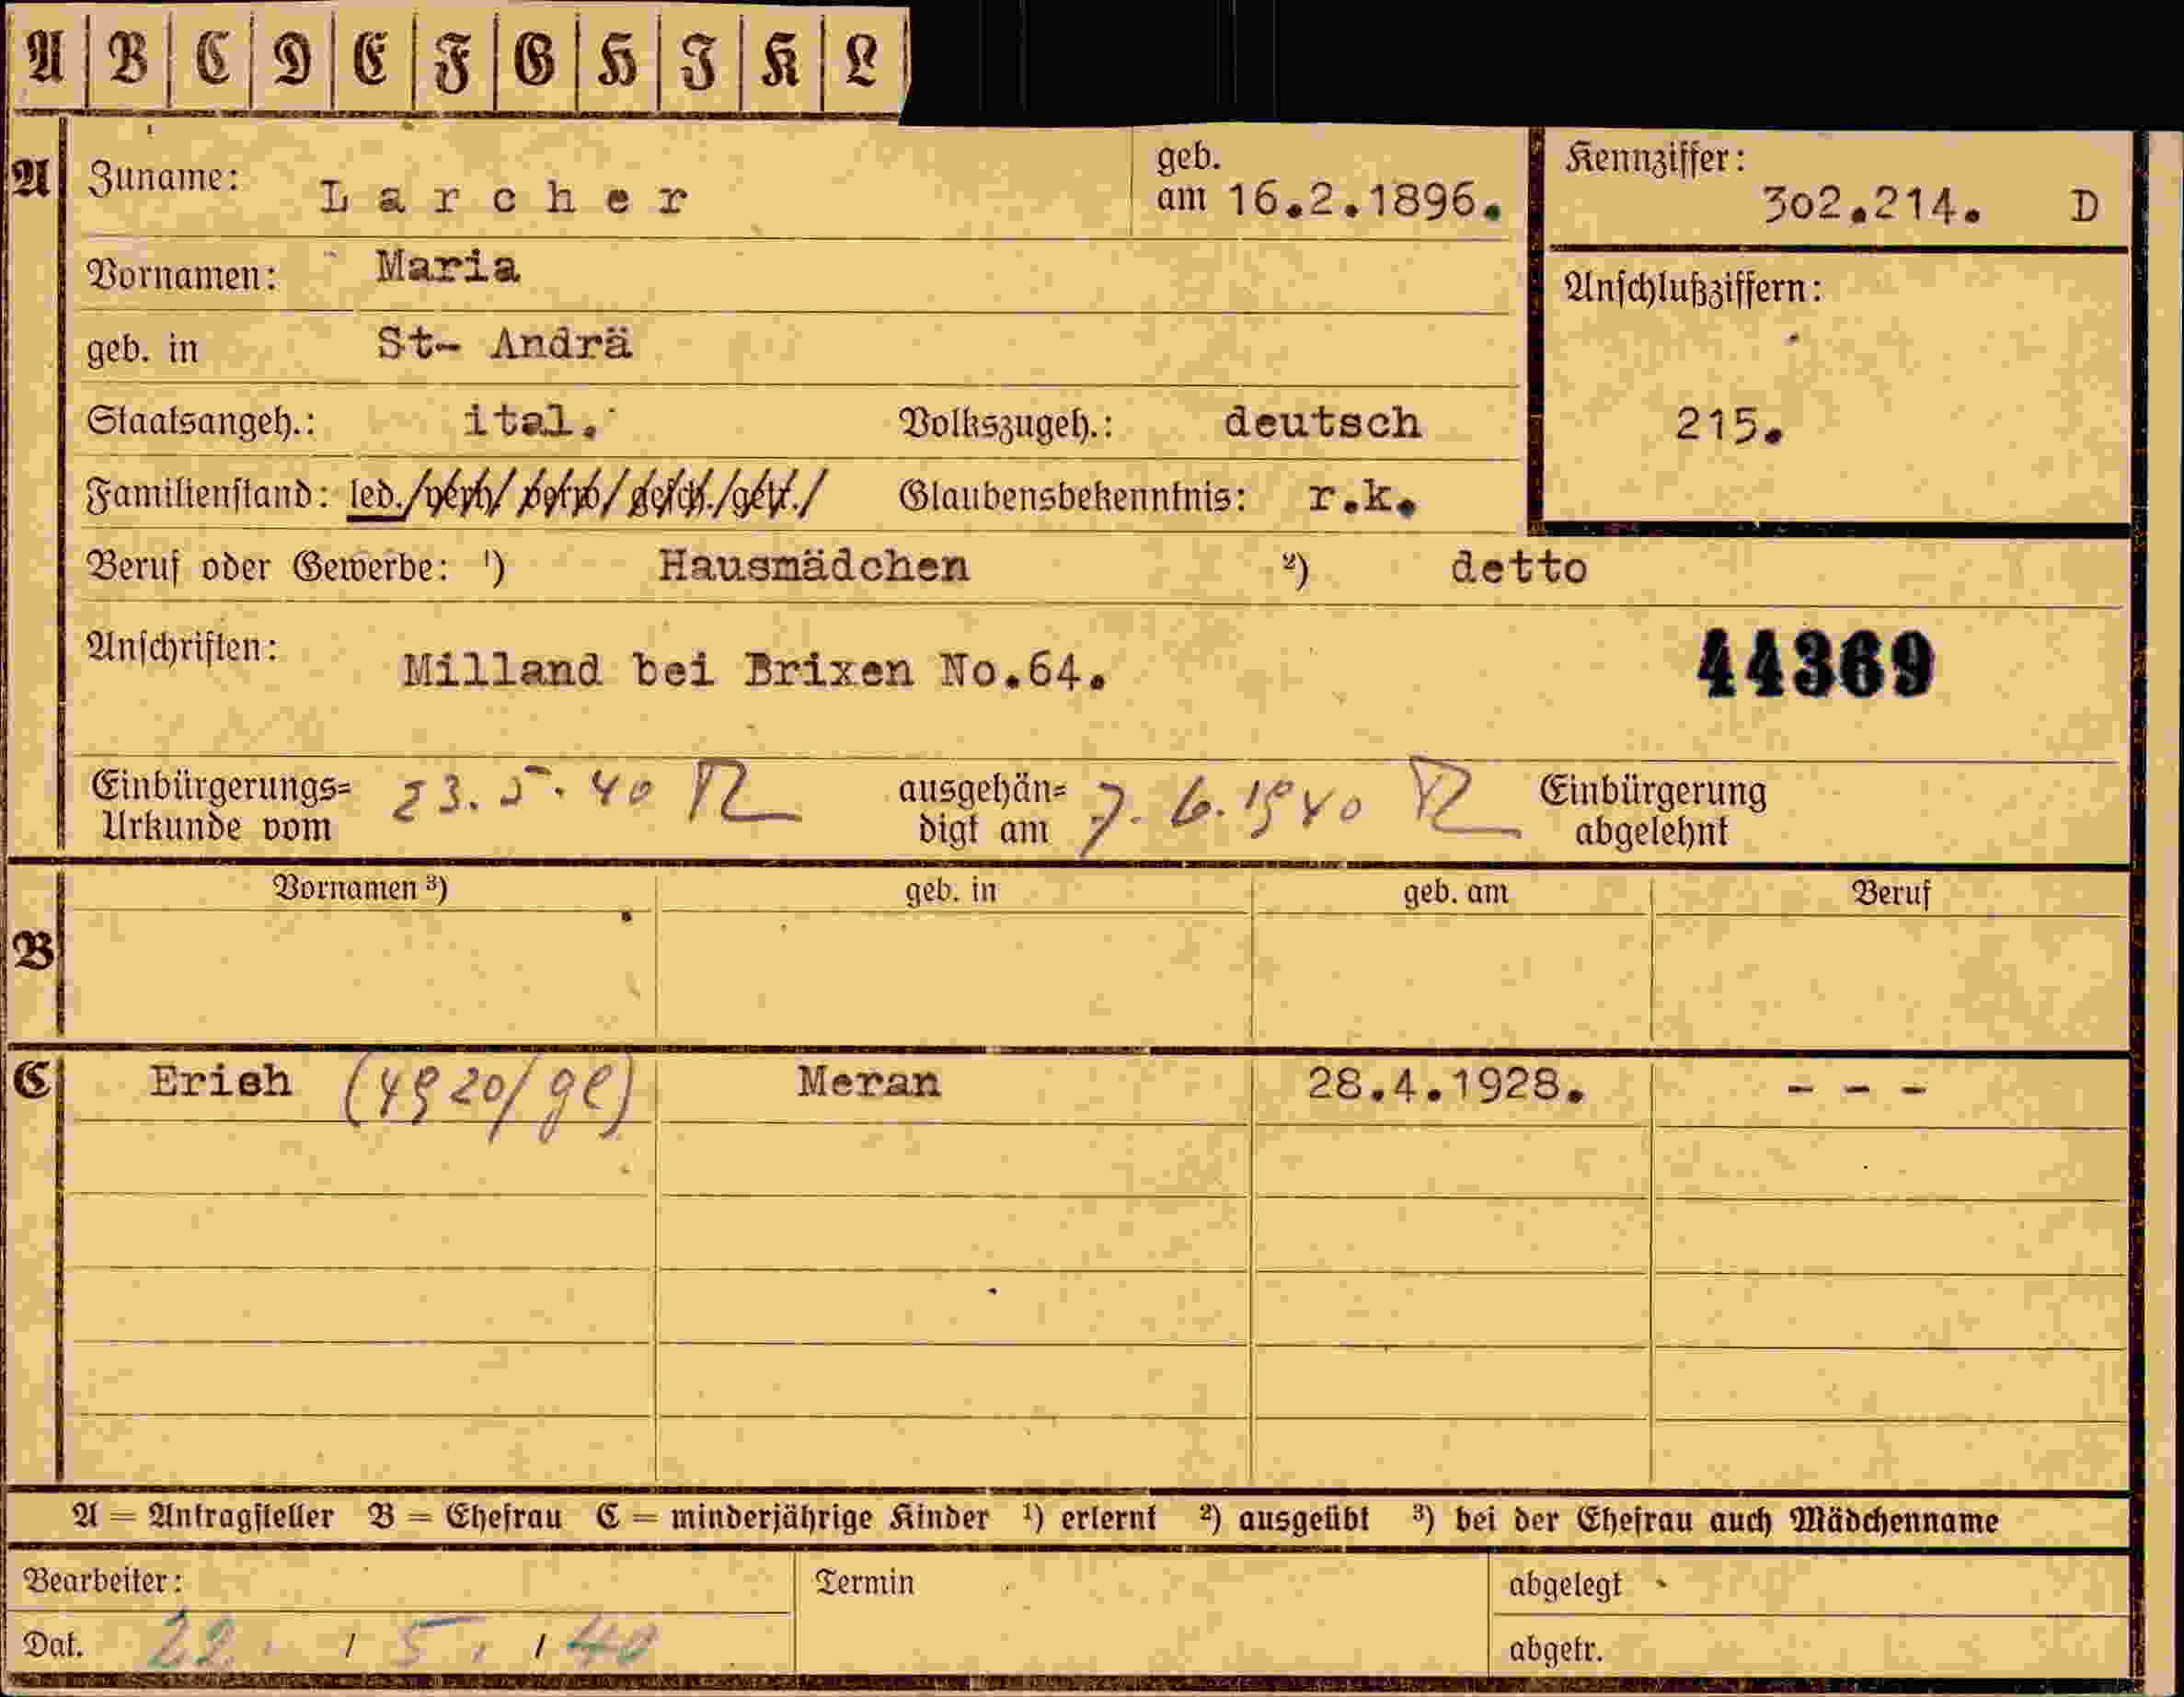 A B C D E F G H I K L
A Zuname: Larcher geb. am 16.2.1896. Kennziffer: 302.214. D
Vornamen: Maria Anschlußziffern:
geb. in St- Andrä
Staatsangeh.: ital. Volkszugeh.: deutsch 215.
Familienstand: led./verh/verw/gesch./getr./ Glaubensbekenntnis: r.k.
Beruf oder Gewerbe: ¹) Hausmädchen ²) detto
Anschriften: Milland bei Brixen No.64. 44369
Einbürgerungs= 23.5.40 ausgehän= 7.6.1940 Einbürgerung
Urkunde vom digt am abgelehnt
Vornamen ³) geb. in geb. am Beruf
B
C Erich Meran 28.4.1928. - - -
A = Antragsteller B = Ehefrau C = minderjährige Kinder ¹) erlernt ²) ausgeübt ³) bei der Ehefrau auch Mädchenname
Bearbeiter: Termin abgelegt
Dat. 22. / 5. / 40 abgetr.